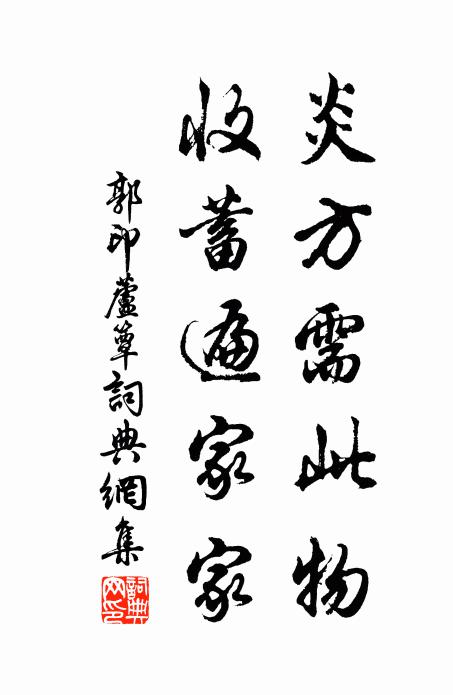 炎方需此物
收蓄遍家家
郭印蘆簟詞典網集
詞典網印